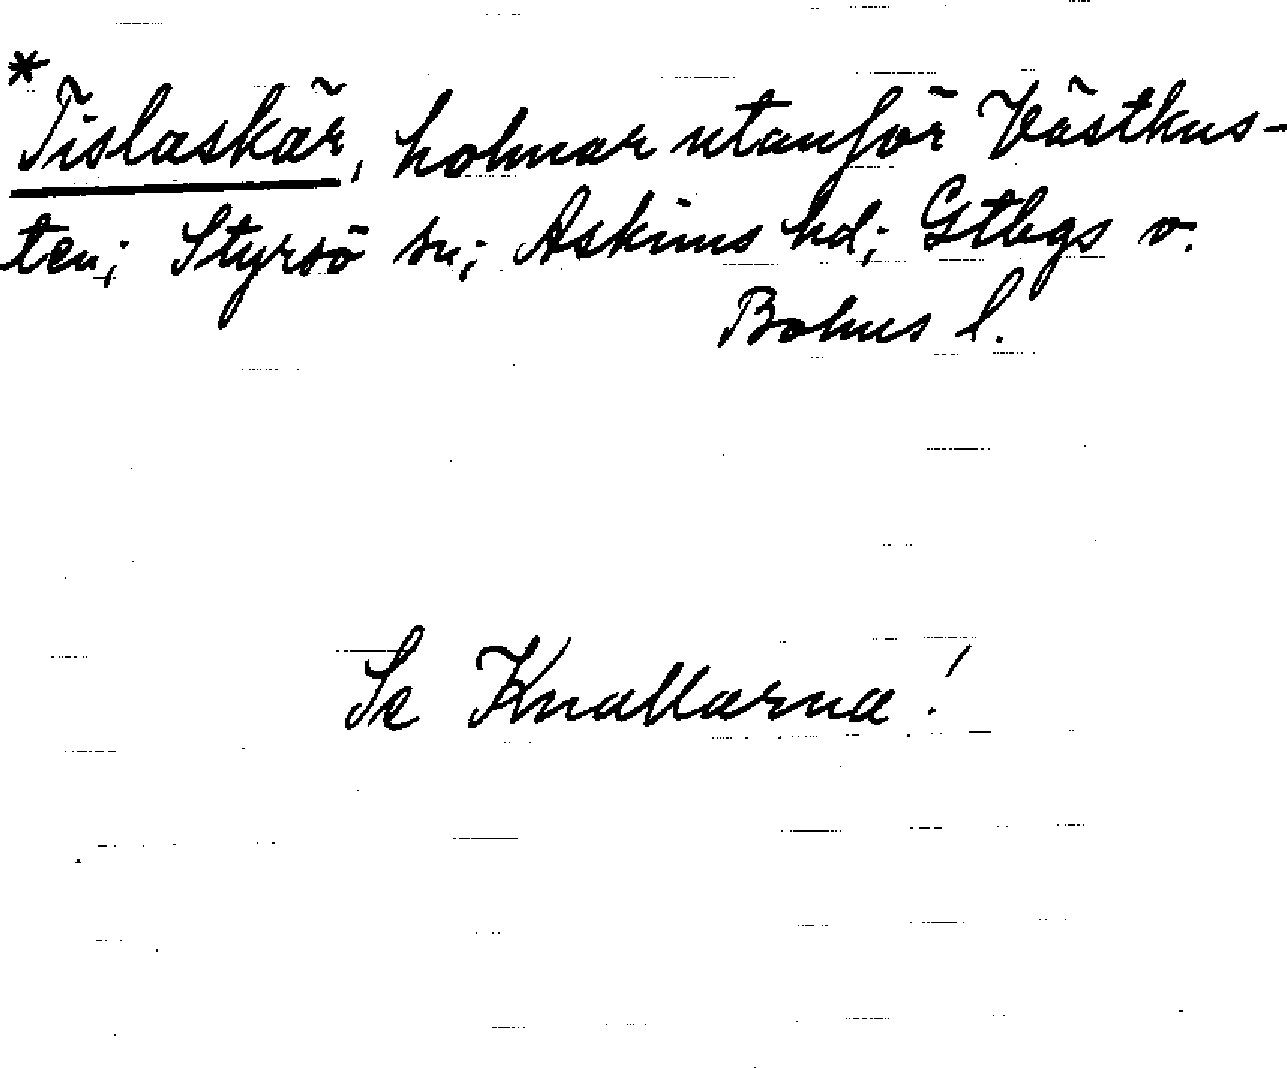 *Tislaskär, holmar utanför Västkus-
ten; Styrsö sn; Askims hd; Gtbgs o.
Bohus l.
Se Knallarna!